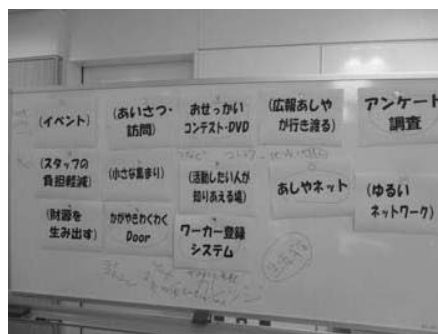 (イベント)
(あいさつ・
訪問)
おせっかい
コンテスト・DVD
(広報あしや
が行き渡る)
アンケート
調査
(スタッフの
負担軽減)
(小さな集まり)
(活動したい人が
知りあえる場)
あしやネット
(ゆるい
ネットワーク)
(財源を
生み出す)
かがやきわくわく
Door
ワーカー登録
システム